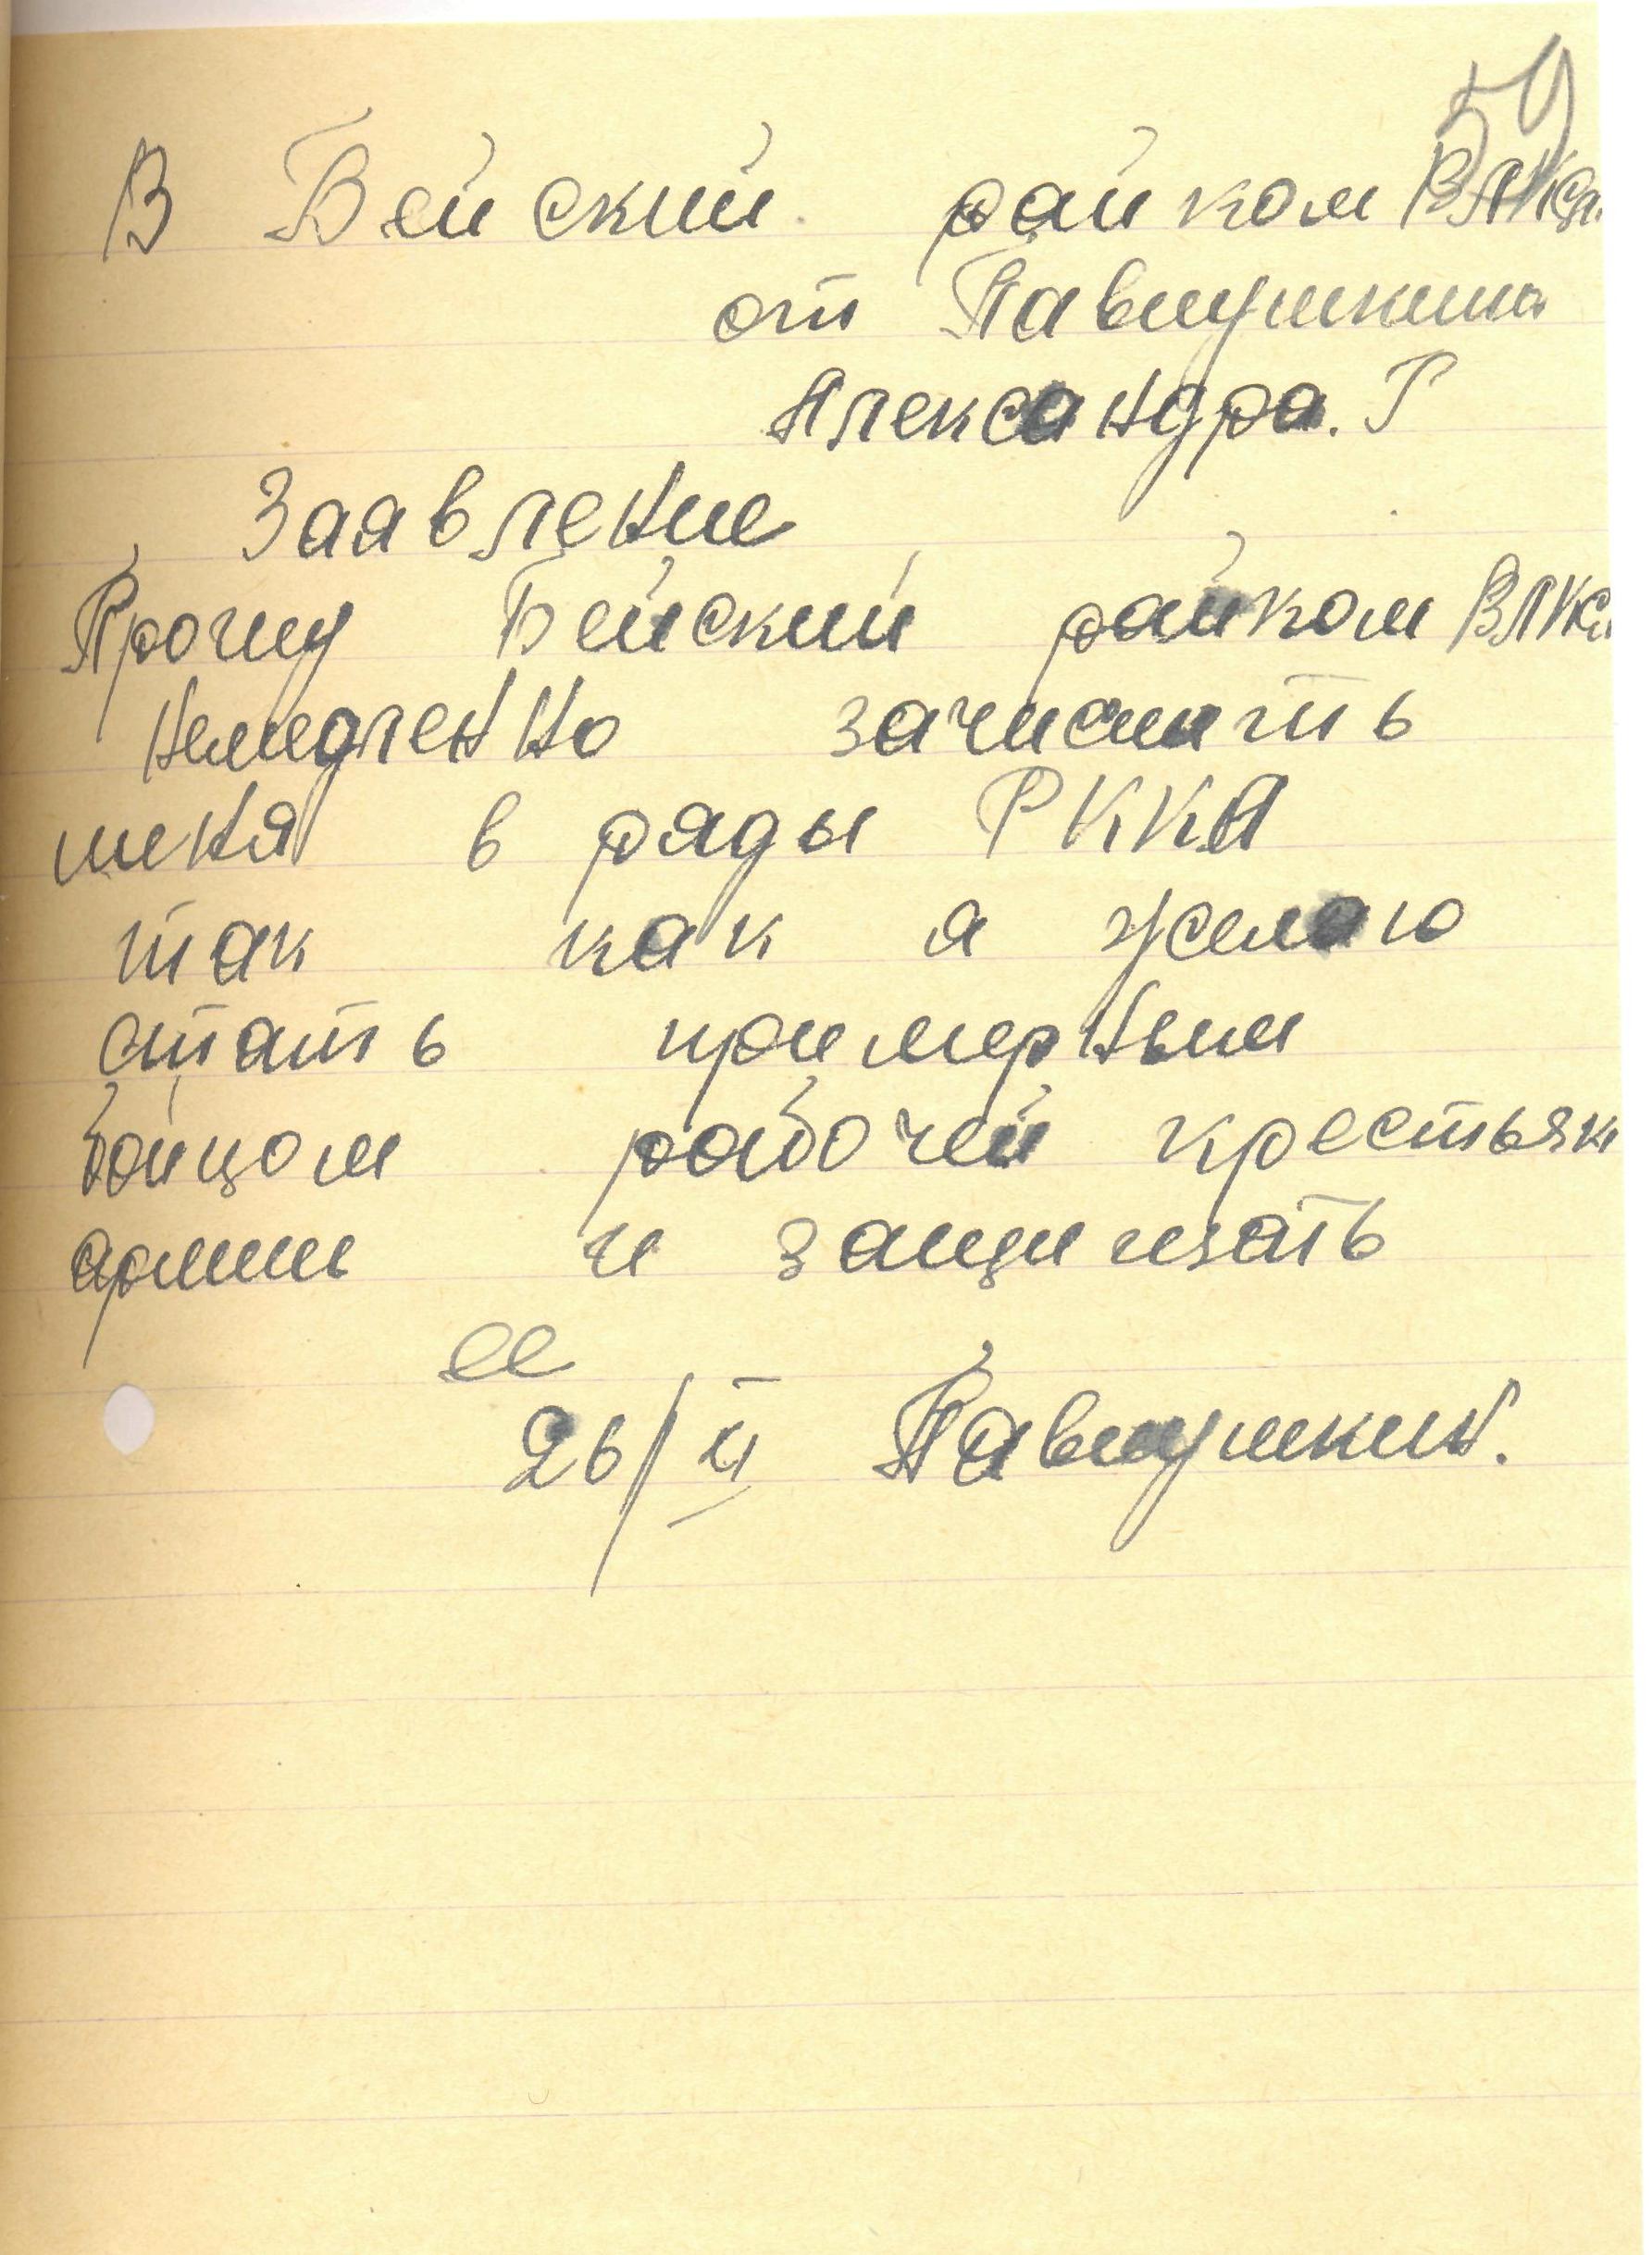 59
В Бейский райком ВЛКСМ
от Павлушкина
Александра. Г
Заявление
Прошу Бейский райком ВЛКСМ
немедленно зачислить
меня в ряды РККА
так как я желаю
стать примерным
бойцом рабочей крестьян
армии и защищать
ее
26/II Павлушкин.